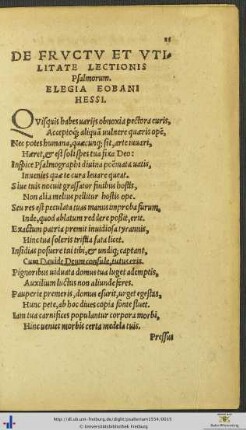 DE FRVCTV ET VTI-
LITATE LECTIONIS
Psalmorum.
ELEGIA EOBANI
HESSI.
QVisquis habes varijs obnoxia pectora curis,
Acceptoq; aliquã vulnere quæris opẽ,
Nec potes humana, quæcunq; sit, arte iuuari,
Hæret, & est soli spes tua fixa Deo:
Inspice Psalmographi diuina poëmata vatis,
Inuenies quæ te cura leuare queat.
Siue tuis nocuit grassatur finibus hostis,
Non alia melius pellitur hostis ope.
Seu res est peculata tuas manus improba furum,
Inde, quod ablatum reddere possit, erit.
Exactum patria premit inuidiosa tyrannis,
Hinc tua soleris tristia fata licet.
Insidias posuere tibi, & vndiq; captant,
Cum Dauide Deum consule, tutus eris.
Pignoribus viduata domus tua luget ademptis,
Auxilium luctus non aliunde feres.
Pauperie premeris, domus esurit, vrget egestas,
Hunc pete, ab hoc diues copia fonte fluet.
Iam tua carnifices populantur corpora morbi,
Hinc veniet morbis certa medela tuis.
Pressus
© Universitätsbibliothek Freiburg